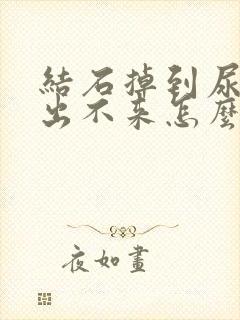 結石掉到尿
出不来怎麼
夜如畫